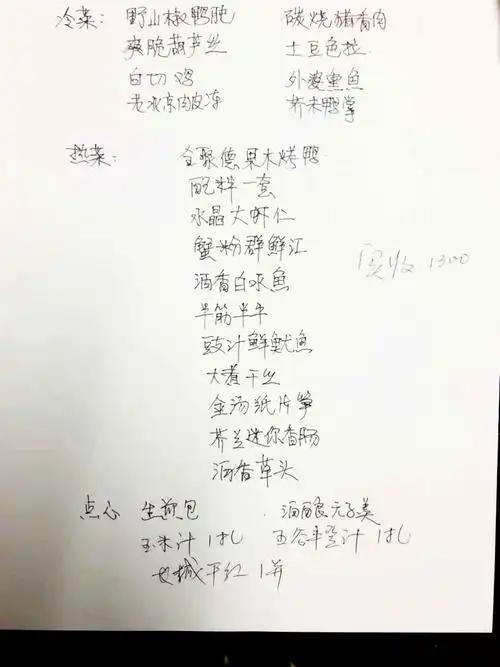 冷菜: 野山椒鸭胗 碳烧猪香肉
爽脆葫芦丝 土豆色拉
白切鸡 外婆熏鱼
老北京肉皮冻 芥末鸭掌
热菜: 全聚德果木烤鸭
配料一套
水晶大虾仁
蟹粉群鲜汇
酒香白水鱼
半筋半
豉汁鲜鱿鱼
实收1300
大煮干丝
金汤纸片笋
芥兰迷你香肠
酒香草头
点心 生煎包 酒酿元子羹
玉米汁1扎 五谷丰登汁1扎
长城干红1并